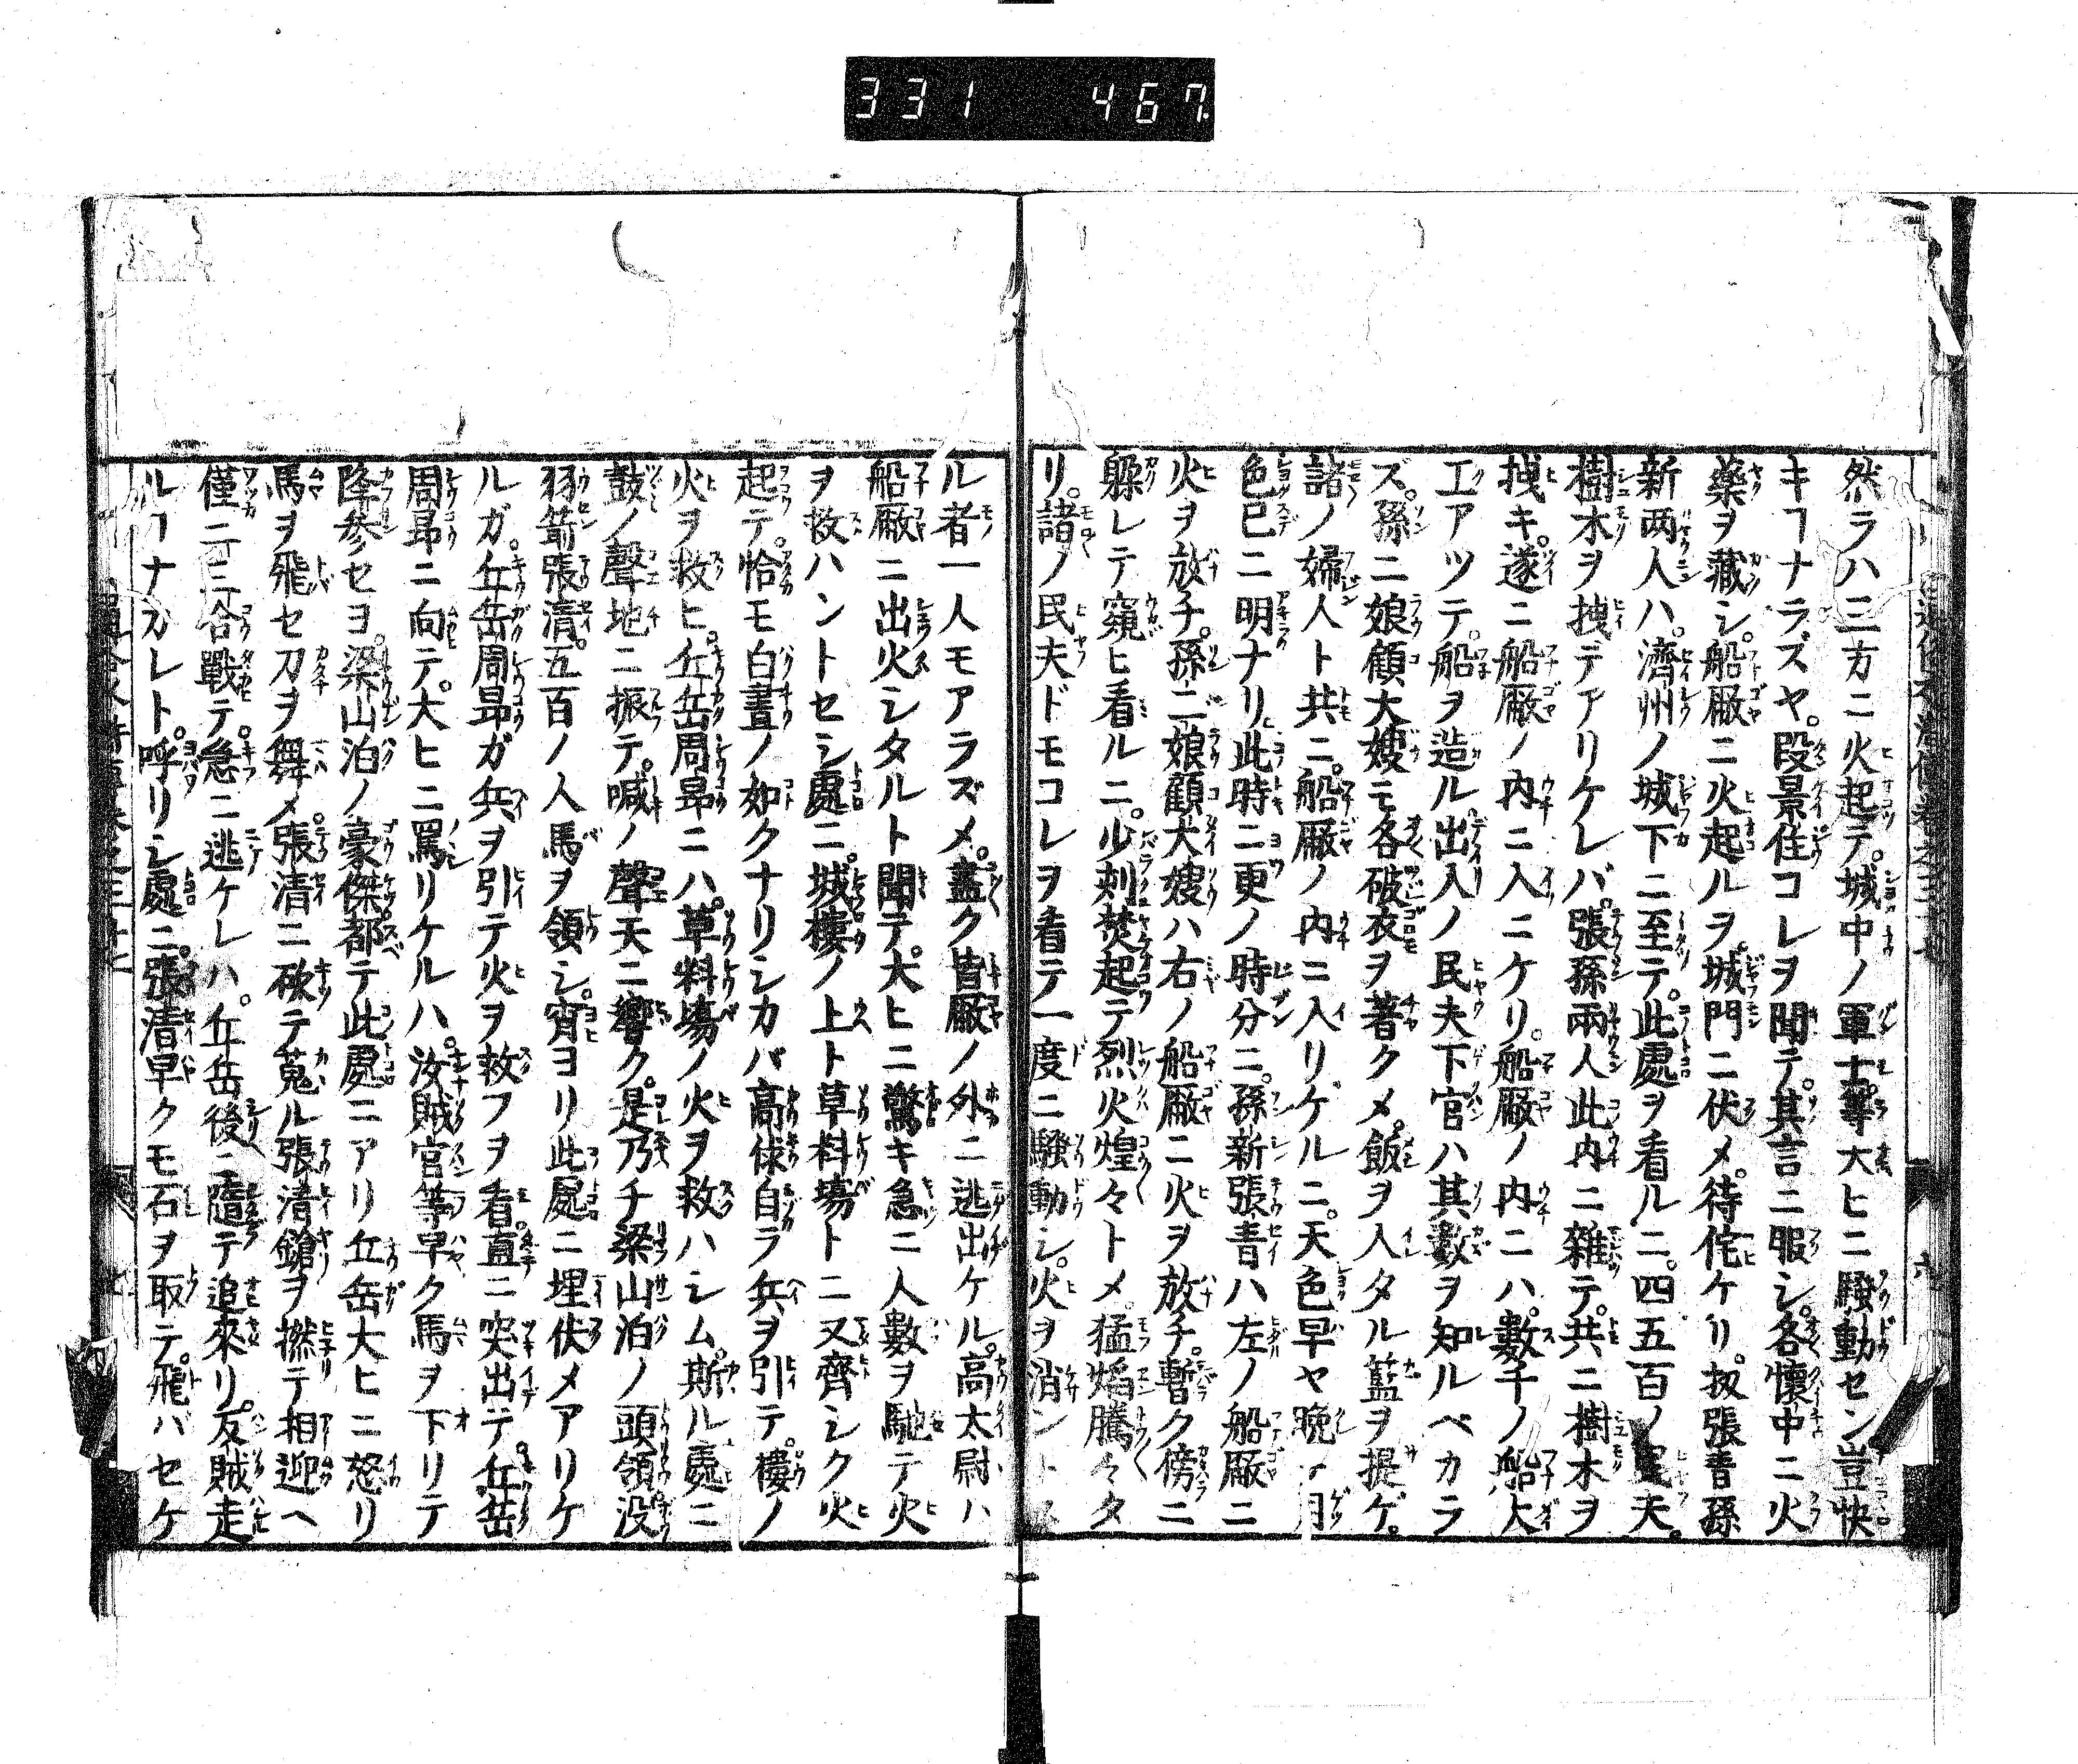 331 467
然ラハ三方ニ火起テ。城中ノ軍士等大ヒニ騒動セン豈快
キヿナラズヤ。段景住コレヲ聞テ。其言ニ服シ。各懷中ニ火
藥ヲ藏シ。船厰ニ火起ルヲ。城門ニ伏メ。待侘ケリ。扨張青孫
新两人ハ。濟州ノ城下ニ至テ。此處ヲ看ルニ。四五百ノ夫。
樹木ヲ拽テアリケレバ。張孫兩人此内ニ雜テ。共ニ樹木ヲ
拽キ。遂ニ船厰ノ内ニ入ニケリ。船厰ノ内ニハ。數千ノ船大
工アツテ。船ヲ造ル。出入ノ民夫下官ハ其數ヲ知ルベカラ
ズ。孫ニ娘顧大嫂モ各破衣ヲ著クメ。飯ヲ入タル籃ヲ提ゲ。
諸ノ婦人ト共ニ。船厰ノ内ニ入リケルニ。天色早ヤ晩テ月
色已ニ明ナリ。此時ニ更ノ時分ニ。孫新張青ハ左ノ船厰ニ
火ヲ放チ。孫二娘顧大嫂ハ右ノ船厰ニ火ヲ放チ。暫ク傍ニ
躱レテ窺ヒ看ルニ。少刻焚起テ烈火煌々トメ。猛焰騰々タ
リ。諸ノ民夫ドモコレヲ看テ一度ニ騒動シ。火ヲ消ント
ル者一人モアラズメ。盡ク皆厰ノ外ニ逃出ケル。高太尉ハ
船厰ニ出火シタルト聞テ。大ヒニ驚キ急ニ人數ヲ馳テ火
ヲ救ハントセシ處ニ。城樓ノ上ト草料塲トニ又齊シク火
起テ。恰モ白晝ノ如クナリシカバ高俅自ラ兵ヲ引テ。樓ノ
火ヲ救ヒ。丘岳周昂ニハ。草料塲ノ火ヲ救ハシム。斯ル處ニ
鼓ノ聲地ニ振テ。喊ノ聲天ニ響ク。是乃チ梁山泊ノ頭領没
羽箭張清。五百ノ人馬ヲ領シ。宵ヨリ此處ニ埋伏メアリケ
ルガ。丘岳周昂ガ兵ヲ引テ火ヲ救フヲ看。直ニ突出テ。丘岳
周昂ニ向テ。大ヒニ罵リケルハ。汝賊官等早ク馬ヲ下リテ
降参セヨ。梁山泊ノ豪傑都テ此處ニアリ丘岳大ヒニ怒リ
馬ヲ飛セ刀ヲ舞メ。張清ニ砍テ蒐ル張清鎗ヲ撚テ相迎ヘ
僅ニ二三合戰テ。急ニ逃ケレハ。丘岳後ニ隨テ追來リ。反賊走
ルヿナカレト。呼リシ處ニ。張清早クモ石ヲ取テ。飛バセケ